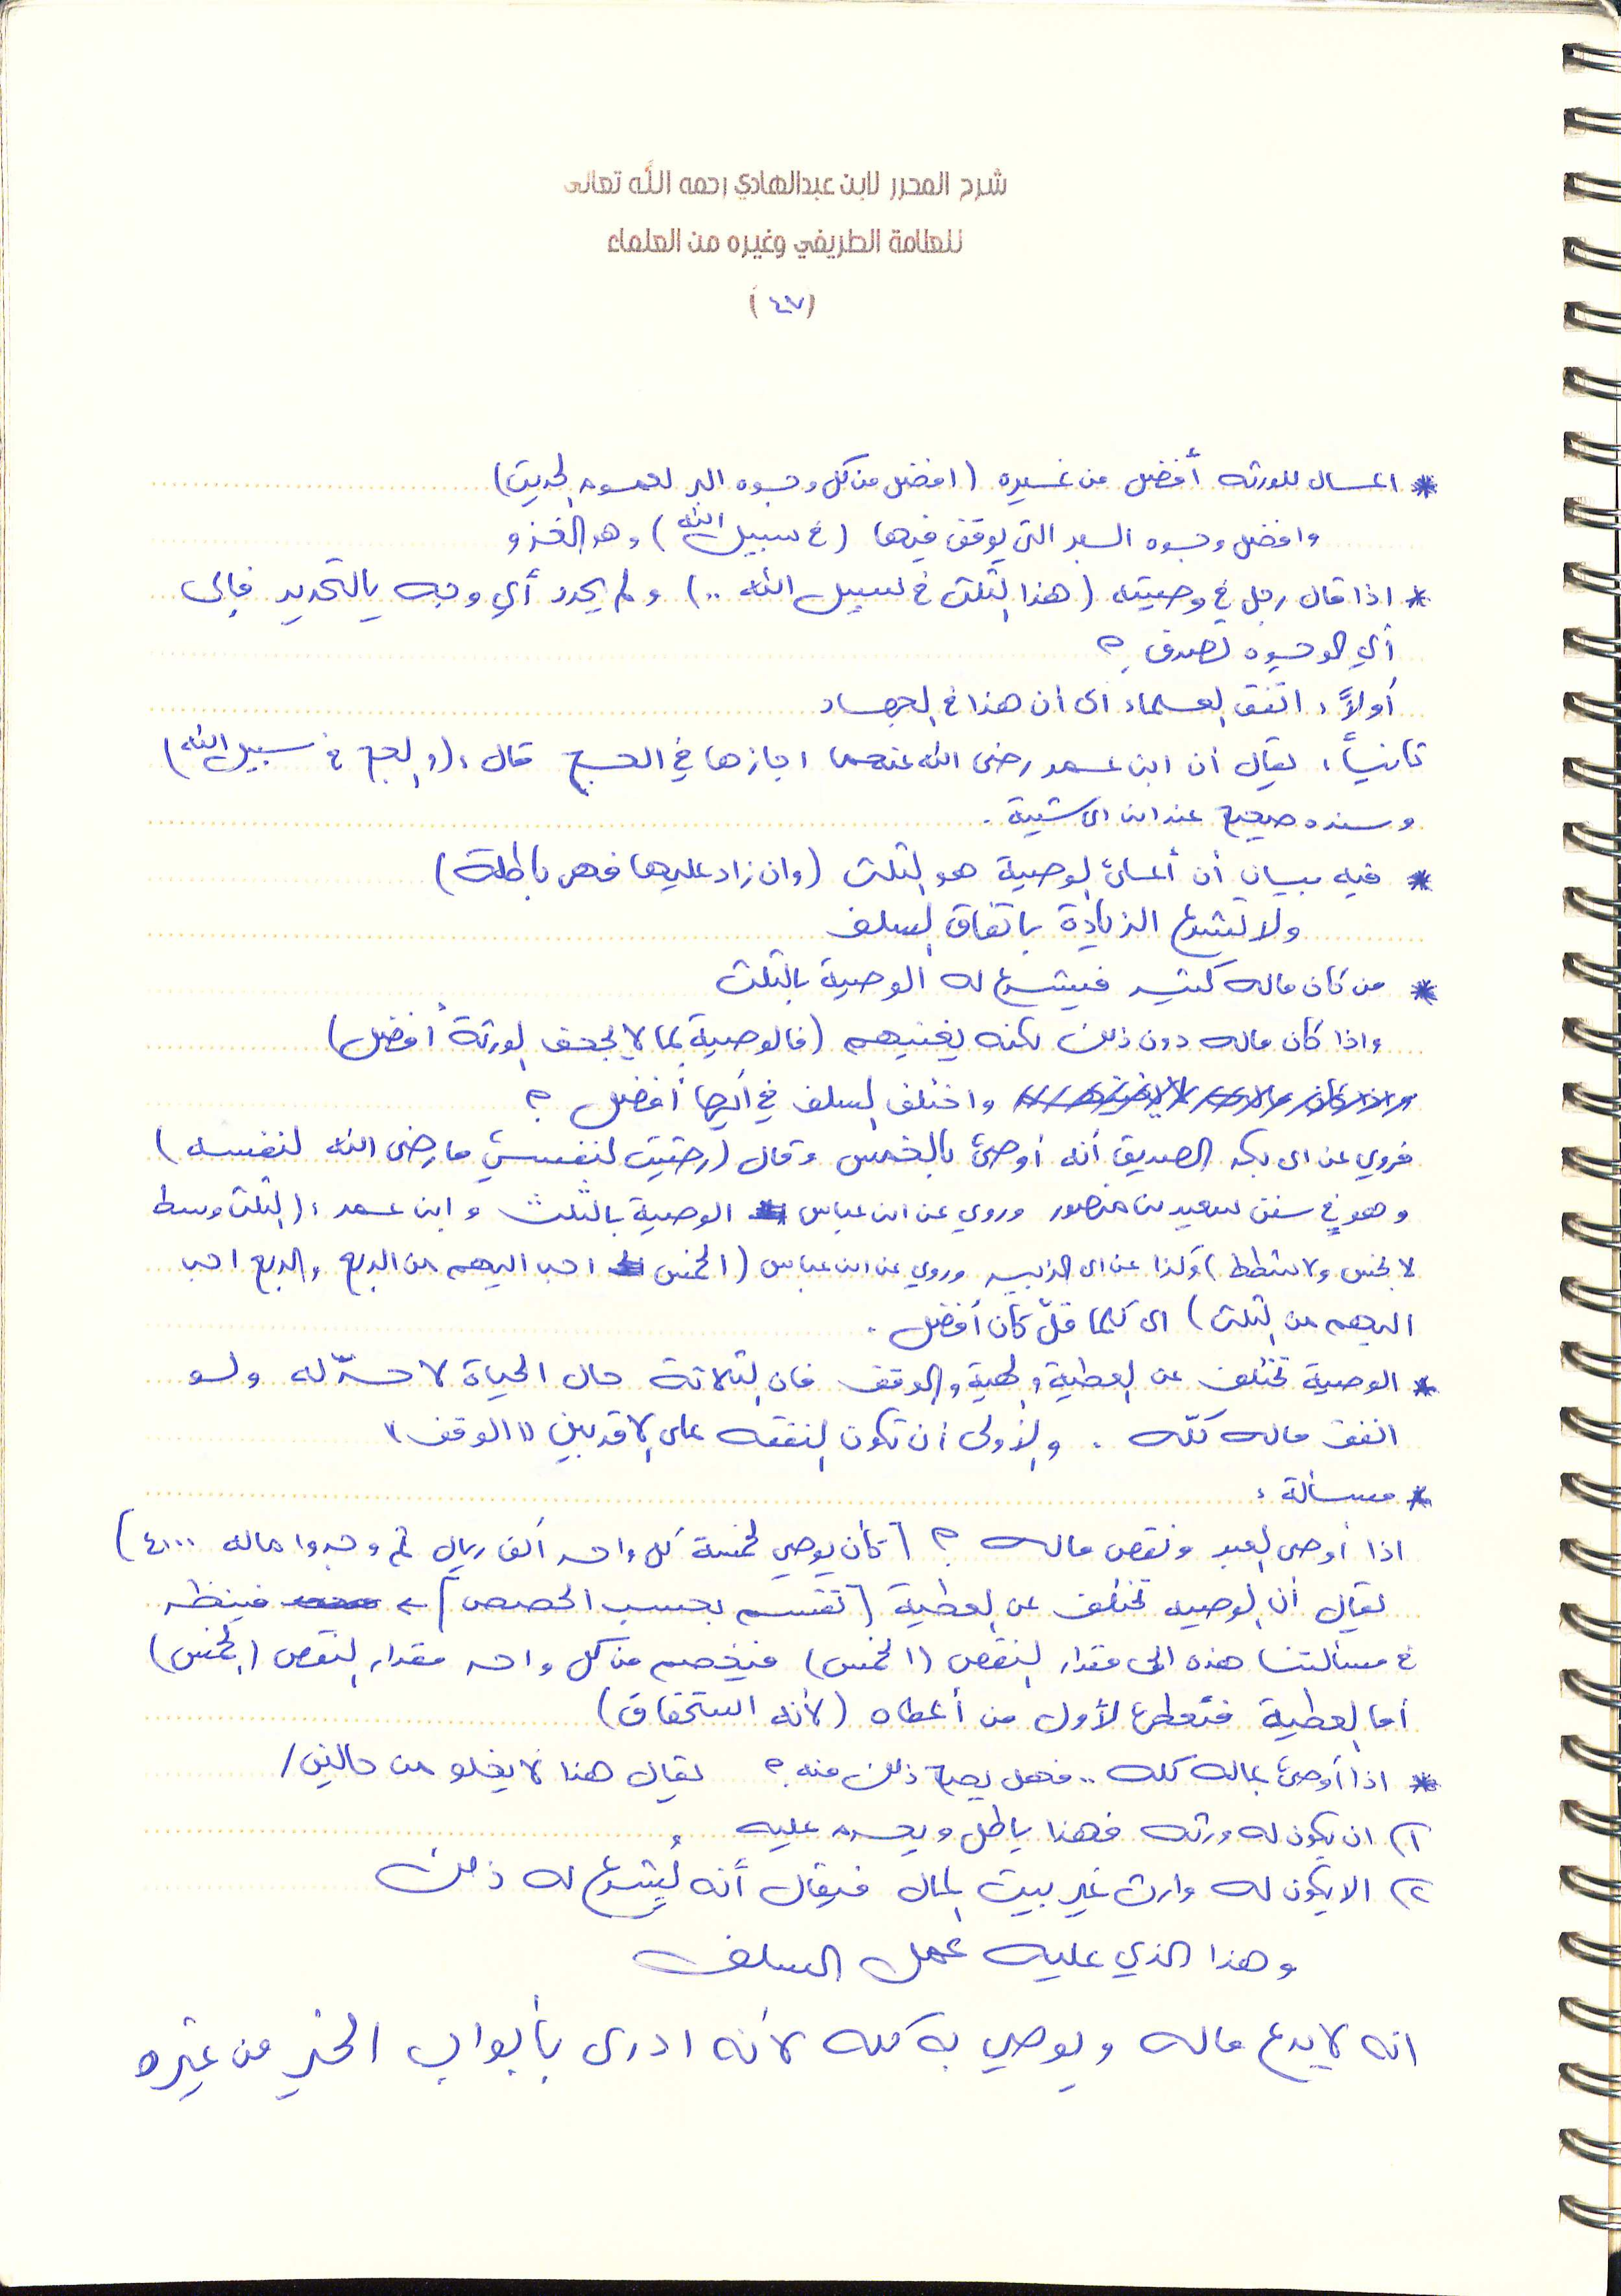 شرح المحرر لابن عبدالهادي رحمه الله تعالى
للعلامة الطريفي وغيره من العلماء
(٤٧)
* المال للورثه أفضل من غيره (افضل من كل وجوه البر لعموم الحديث)
وافضل وجوه البر التي يوقف فيها (في سبيل الله) وهو الغزو
* اذا قال رجل في وصيته (هذا الثلث في سبيل الله ..) ولم يحدد أي وجه بالتحديد فإلى
أي الوجوه تصرف ؟
أولاً: اتفق العلماء الى ان هذا في الجهاد
ثانياً: يقال ان ابن عمر رضى الله عنهما اجازها في الحج قال: (والحج في سبيل الله)
وسنده صحيح عند ابن ابي شيبة.
* فيه بيان أن أعلى الوصية هو الثلث (وان زاد عليها فهي باطلة)
ولا تشرع الزيادة باتفاق السلف
* من كان ماله كثير فيشرع له الوصية بالثلث
واذا كان ماله دون ذلك لكنه يغنيهم (فالوصية بما لا يجحف الورثة أفضل)
واختلف السلف في أيها أفضل ؟
فروي عن ابي بكر الصديق أنه أوصى بالخمس وقال (رضيت لنفسي ما رضى الله لنفسه)
وهو في سنن سعيد بن منصور وروي عن ابن عباس الوصية بالثلث وابن عمر: (الثلث وسط
لا بخس ولا شطط) وكذا عن ابي الزبير وروي عن ابن عباس (الخمس احب اليهم من الربع والربع احب
اليهم من الثلث) اي كلما قلّ كان أفضل.
* الوصية تختلف عن العطية والهبة والوقف فان الثلاثة حال الحياة لا حدّ له ولو
انفق ماله كلّه . والأولى ان تكون النفقه على الاقربين "الوقف"
* مسألة:
اذا أوصى العبد ونقص ماله ؟ [كأن يوصي لخمسة كل واحد ألف ريال ثم وجدوا ماله ٤٠٠٠)
يقال أن الوصيه تختلف عن العطية [تقسم بحسب الحصص] فينظر
في مسألتنا هذه الى مقدار النقص (الخمس) فيخصم من كل واحد مقدار النقص (الخمس)
أما العطية فتعطى لأول من أعطاه (لأنه استحقاق)
* اذا أوصى بماله كله .. فهل يصح ذلك منه ؟ يقال هنا لا يخلو من حالين/
١) ان يكون له ورثه فهنا باطل ويحرم عليه
٢) الا يكون له وارث غير بيت المال فيقال أنه يُشرع له ذلك
وهذا الذي عليه عمل السلف
انه لا يدع ماله ويوصي به كله لأنه ادرى بأبواب الخير من غيره